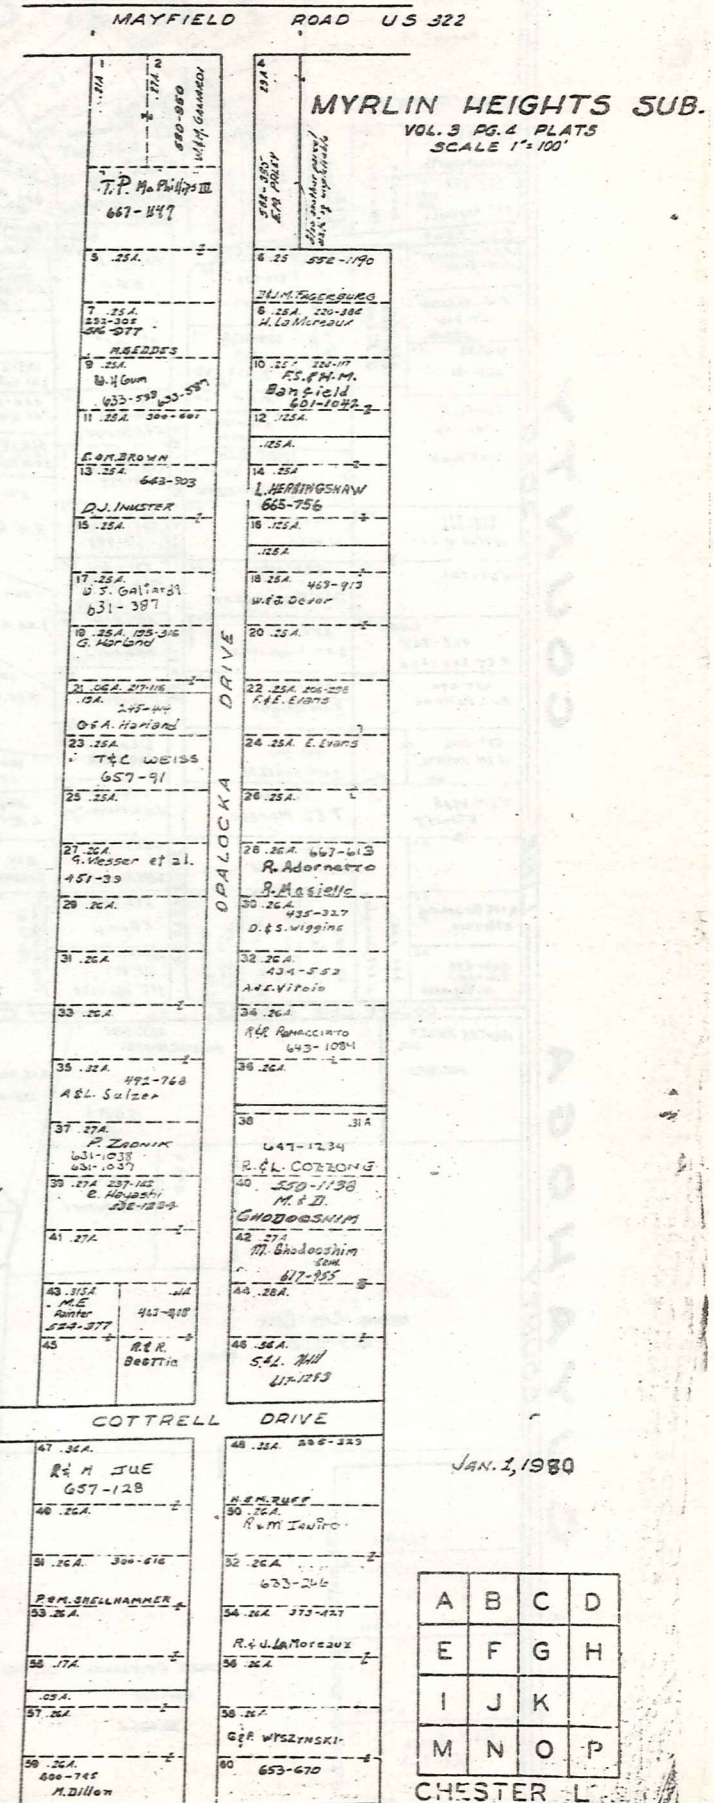 MAYFIELD ROAD US 322
MYRLIN HEIGHTS SUB.
VOL. 3 PG. 4 PLATS
SCALE 1"=100'
1
.21A
2
.27A
580-950
4
.29A
T.P. McPhillips III
667-1147
5 .25A.
7 .25A.
252-305
M.GEDDES
9 .25A.
W.H Gum
633-598
11 .25A. 300-601
E. & M. BROWN
13 .25A.
643-903
D.J. INKSTER
15 .25A.
17 .25A.
W.J. Galiardi
631-387
19 .25A. 195-316
G. Harland
21 .06A. 217-116
.19A.
245-44
G & A. Harland
23 .25A.
T&C WEISS
657-91
25 .25A.
27 .26A.
G. Messer et al.
451-39
29 .26A.
31 .26A.
33 .26A.
35 .32A.
492-768
A&L. Sulzer
37 .27A.
P. ZADNIK
631-1038
631-1037
39 .27A
R. Hayashi
41 .27A
43 .315A
M.E
Painter
524-377
45
R.& R.
Beattie
6 .25 552-1190
J.M. FAGERBURG
8 .25A. 220-386
H. LaMoreaux
10 .25
F.S. & H.M.
Banfield
601-1042
12 .125A.
.125A.
14 .25A
L. HERRINGSHAW
665-756
16 .125A.
.125A
18 .25A. 469-913
W.&J. Devor
20 .25A.
22 .25A. 206-298
F.&E. Evans
24 .25A. E. Evans
26 .25A.
28 .26A. 667-613
R. Adornetto
R. Masiello
30 .26A.
435-327
D. & S. Wiggins
32 .26A.
434-553
A.&E. Vitoio
34 .26A
643-1084
36 .26A.
38 .31A
647-1234
R. & L. COZZONE
40 550-1138
M. & D.
GHODOOSHIM
42 .27A
M. Ghodooshim
617-955
44 .28A.
46 .36A.
S.&L. Hall
617-1253
OPALOCKA DRIVE
COTTRELL DRIVE
47 .36A.
R& M JUE
657-128
.26A.
51 .26A. 300-616
P. & M. SHELLHAMMER
53 .26A.
55 .17A.
.09A.
57 .26A.
59 .26A.
600-745
M. Dillon
48 .35A.
H. & M. RUFF
50 .26A.
R & M Ianiro
52 .26A
633-246
54 .26A 373-427
R. & J. LaMoreaux
56 .26A
58 .26A
G&P. WYSZYNSKI
60
653-670
JAN. 1, 1980
A B C D
E F G H
I J K
M N O P
CHESTER L